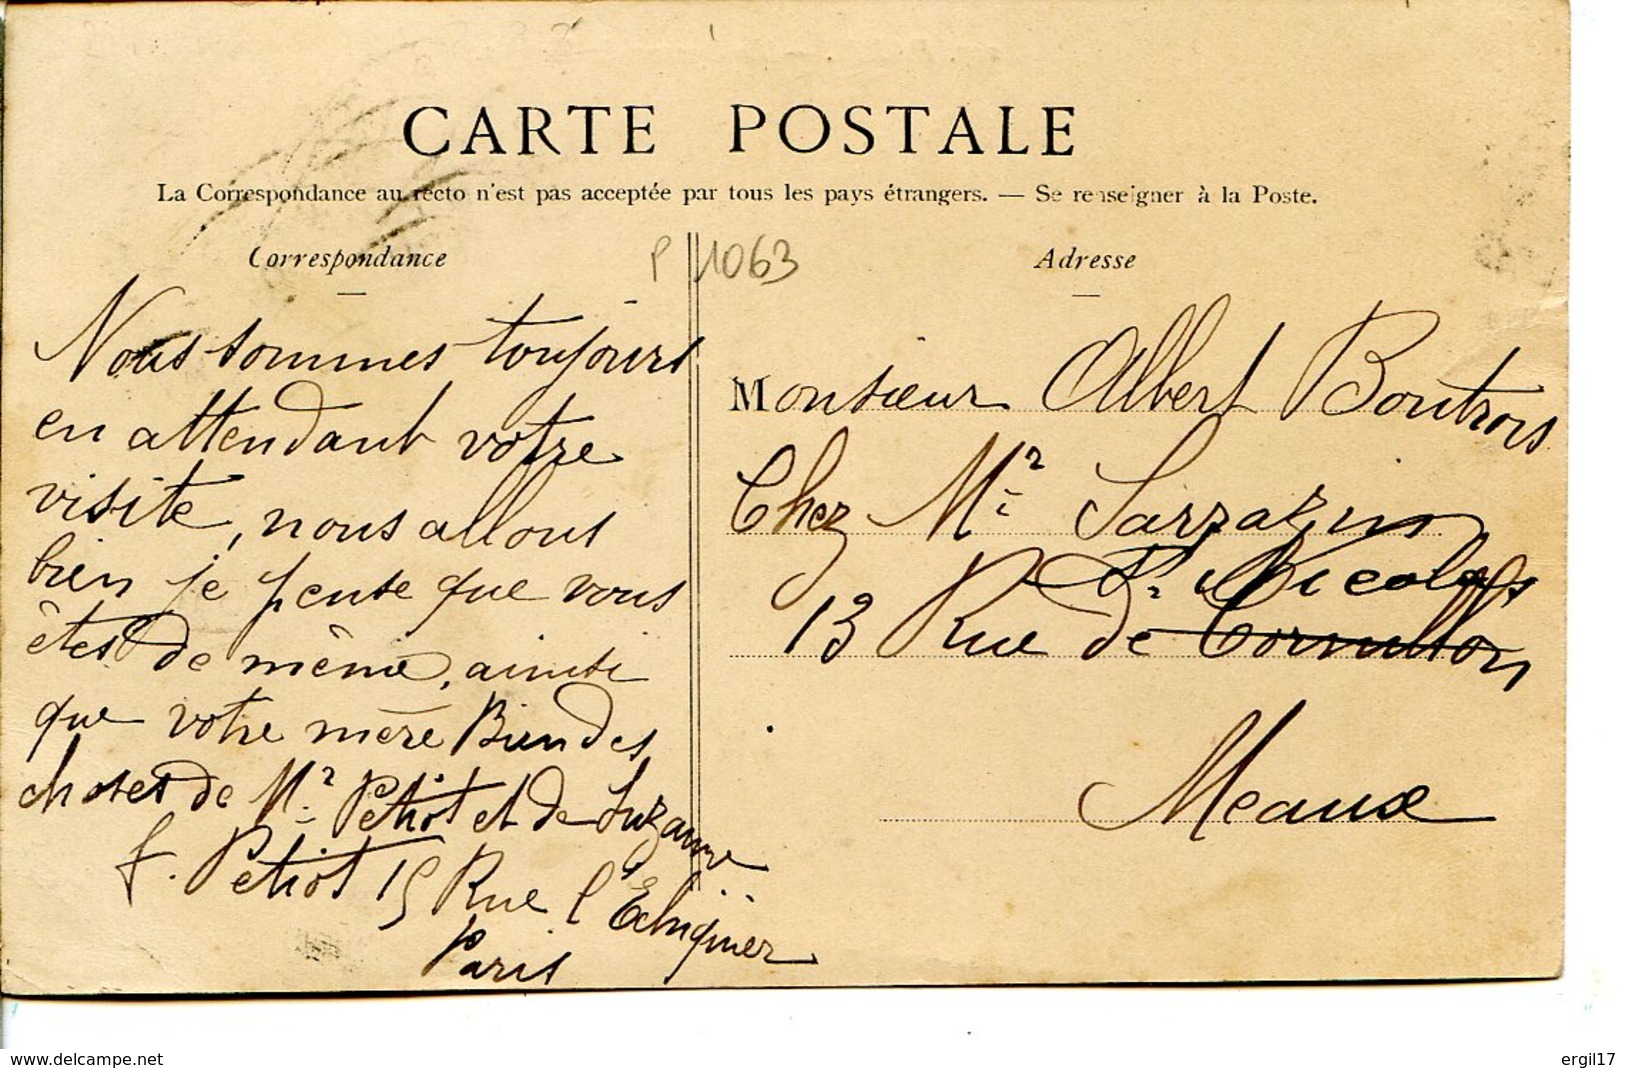 CARTE POSTALE
La Correspondance au recto n'est pas acceptée par tous les pays étrangers. — Se renseigner à la Poste.
Correspondance
P 1063
Adresse
Nous sommes toujours
en attendant votre
visite, nous allons
bien je pense que vous
êtes de même, ainsi
que votre mère Bien des
choses de Mr Petiot et de Suzanne
f. Petiot 15 Rue l'Echiquier
Paris
Monsieur Albert Boutrois
Chez Mr Sarrazin
St Nicolas
13 Rue de Cornillon
Meaux
www.delcampe.net
ergil17